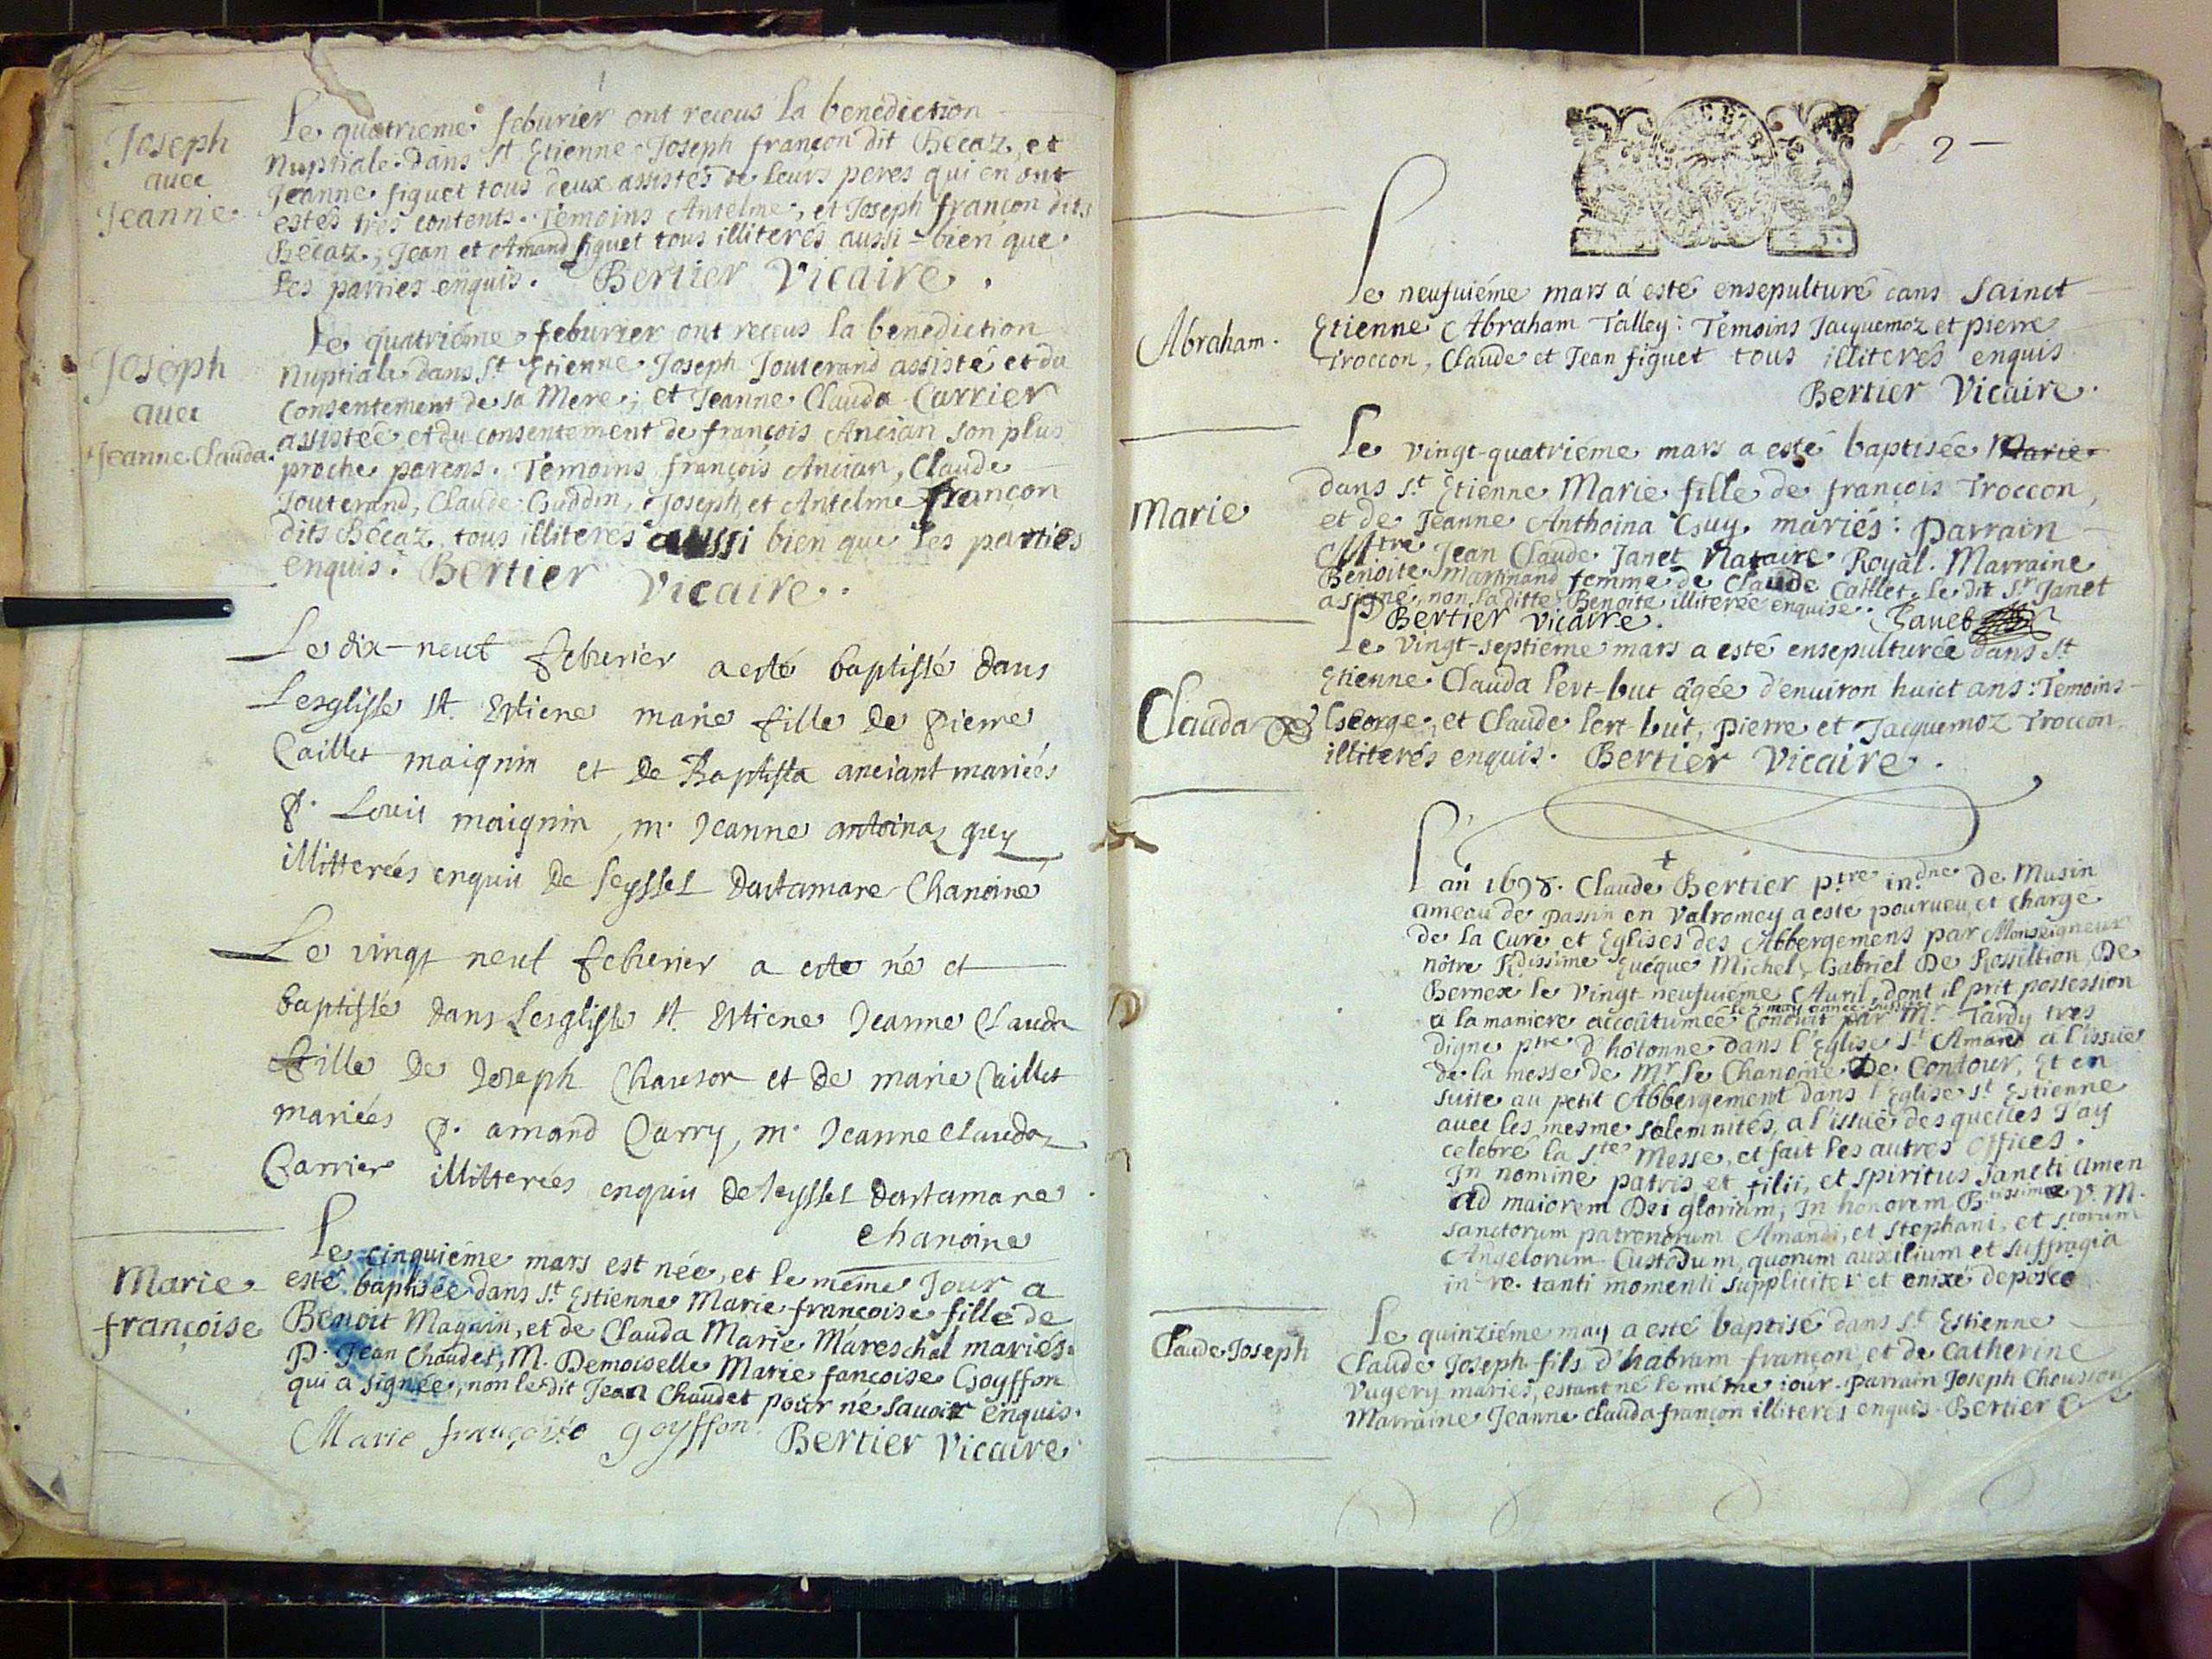 Joseph
avec
Jeanne
Le quatrieme feburier ont receus la benediction
Nuptiale dans St Etienne Joseph françon dit Becaz, et
Jeanne figuet tous deux assistés de leurs peres qui en ont
estés tres contents. Temoins Antelme, et Joseph françon dits
Becaz, Jean et Amand figuet tous illiterés aussi-bien que
les parties enquis. Bertier Vicaire.
Joseph
avec
Jeanne Clauda.
Le quatriéme feburier ont receus la benediction
Nuptiale dans St Etienne Joseph Jouterand assisté et du
Consentement de sa Mere; et Jeanne Clauda Carrier
assistée et du consentement de françois Ancian son plus
proche parens. Temoins françois Ancian, Claude
Jouterand, Claude Guddin, Joseph et Antelme françon
dits Bécaz tous illiterés aussi bien que les parties
enquis. Bertier Vicaire.
Le dix-neuf feburier a esté baptissé dans
Lesglisse St. Estiene marie fille de pierre
Caillet maignin et de Baptista anciant mariées
P. Louis maignin, m. Jeanne antoinaz guy
illitterées enquis De seyssel Dartamare Chanoine
Le vingt neuf feburier a esté né et
baptissé dans Lesglisse St. Estiene Jeanne Clauda
fille De Joseph Chauson et de marie Caillet
mariées P. amand Carry, m. Jeanne Claudaz
Carrier illitterées enquis de seyssel Dartamare
Chanoine
Marie
françoise
Le cinquiéme mars est née, et le même Jour a
esté baptisée dans St. Estienne Marie françoise fille de
Benoit Magnin, et de Clauda Marie Mareschal mariés.
P. Jean Chaudet, M. Demoiselle Marie fancoise Goyffon
qui a signée, non le dit Jean Chaudet pour né savoir enquis.
Marie françoise goyffon. Bertier Vicaire
2
Abraham.
Le neufuiéme mars a esté ensepulturé dans Sainct
Etienne Abraham Talley: Temoins Jacquemoz et pierre
Troccon, Claude et Jean figuet tous illiterés enquis
Bertier Vicaire.
Marie
Le vingt-quatriéme mars a esté baptisée Marie
dans St. Etienne Marie fille de françois Troccon,
et de Jeanne Anthoina Guy mariés: Parrain
Mtre Jean Claude Janet Notaire Royal. Marraine
Benoite Martinand femme de Claude Caillet. le dit Sr Janet
a signé, non la ditte Benoite illiterée enquise. Janet
Bertier Vicaire.
Clauda
Le vingt-septiéme mars a esté ensepulturée dans St
Etienne Clauda Pert-but âgée d'enuiron huict ans: Temoins
George, et Claude Pert-but, pierre et Jacquemoz Troccon
illiterés enquis. Bertier Vicaire.
L'an 1698. Claude Bertier ptre indne de Musin
ameau de passin en Valromey a esté pourueu et chargé
de la Cure et Eglises des Abbergemens par Monseigneur
nôtre Rdissime Euéque Michel Gabriel De Rossillion De
Bernex le vingt-neufuiéme Auril, dont il prit possession
le 5 may année susditte
a la maniere accoûtumée conduit par Mr Tardy tres
digne ptre d'hôtonne dans l'Eglise St Amand a l'issue
de la messe de Mr le Chanoine De Contour, Et en
suite au petit Abbergement dans l'Eglise St Estienne
auec les mesme solemnités, a l'issüe des quelles J'ay
celebré la Ste Messe, et fait les autres Offices.
In nomine patris et filii, et spiritus sancti amen
Ad maiorem Dei gloriam, In honorem Btissimæ V. M.
sanctorum patronorum Amandi, et stephani, et Storum
Angelorum Custodum, quorum auxilium et suffragia
in re tanti momenti suppliciter et enixé deposco
Claude Joseph
Le quinziéme may a esté baptisé dans St Estienne
Claude Joseph fils d'habram françon et de Catherine
Vugery mariés, estant né le même iour. Parrain Joseph Chousson
Marraine Jeanne Clauda françon illiterés enquis. Bertier C.